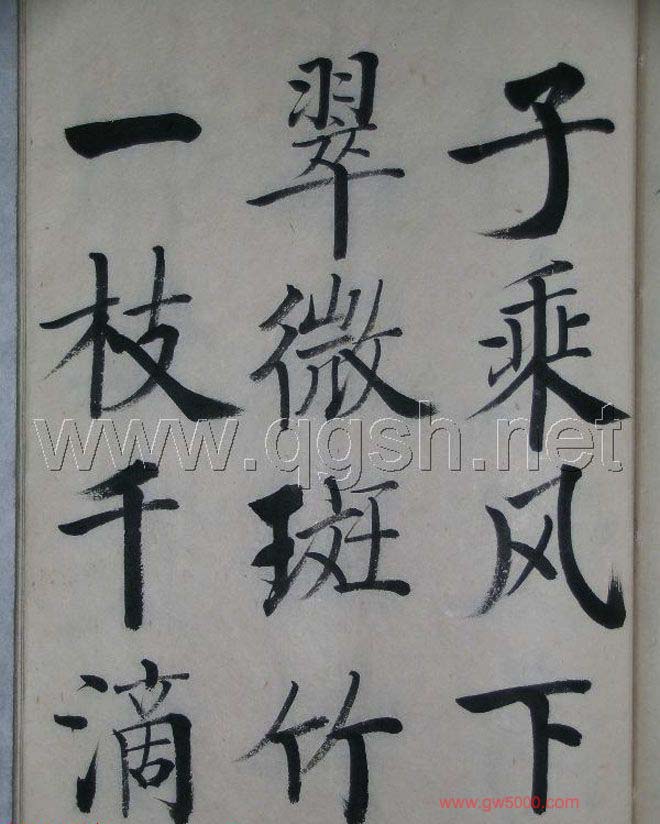 子乘风下
翠微斑竹
一枝千滴
www.qgsh.net
www.gw5000.com